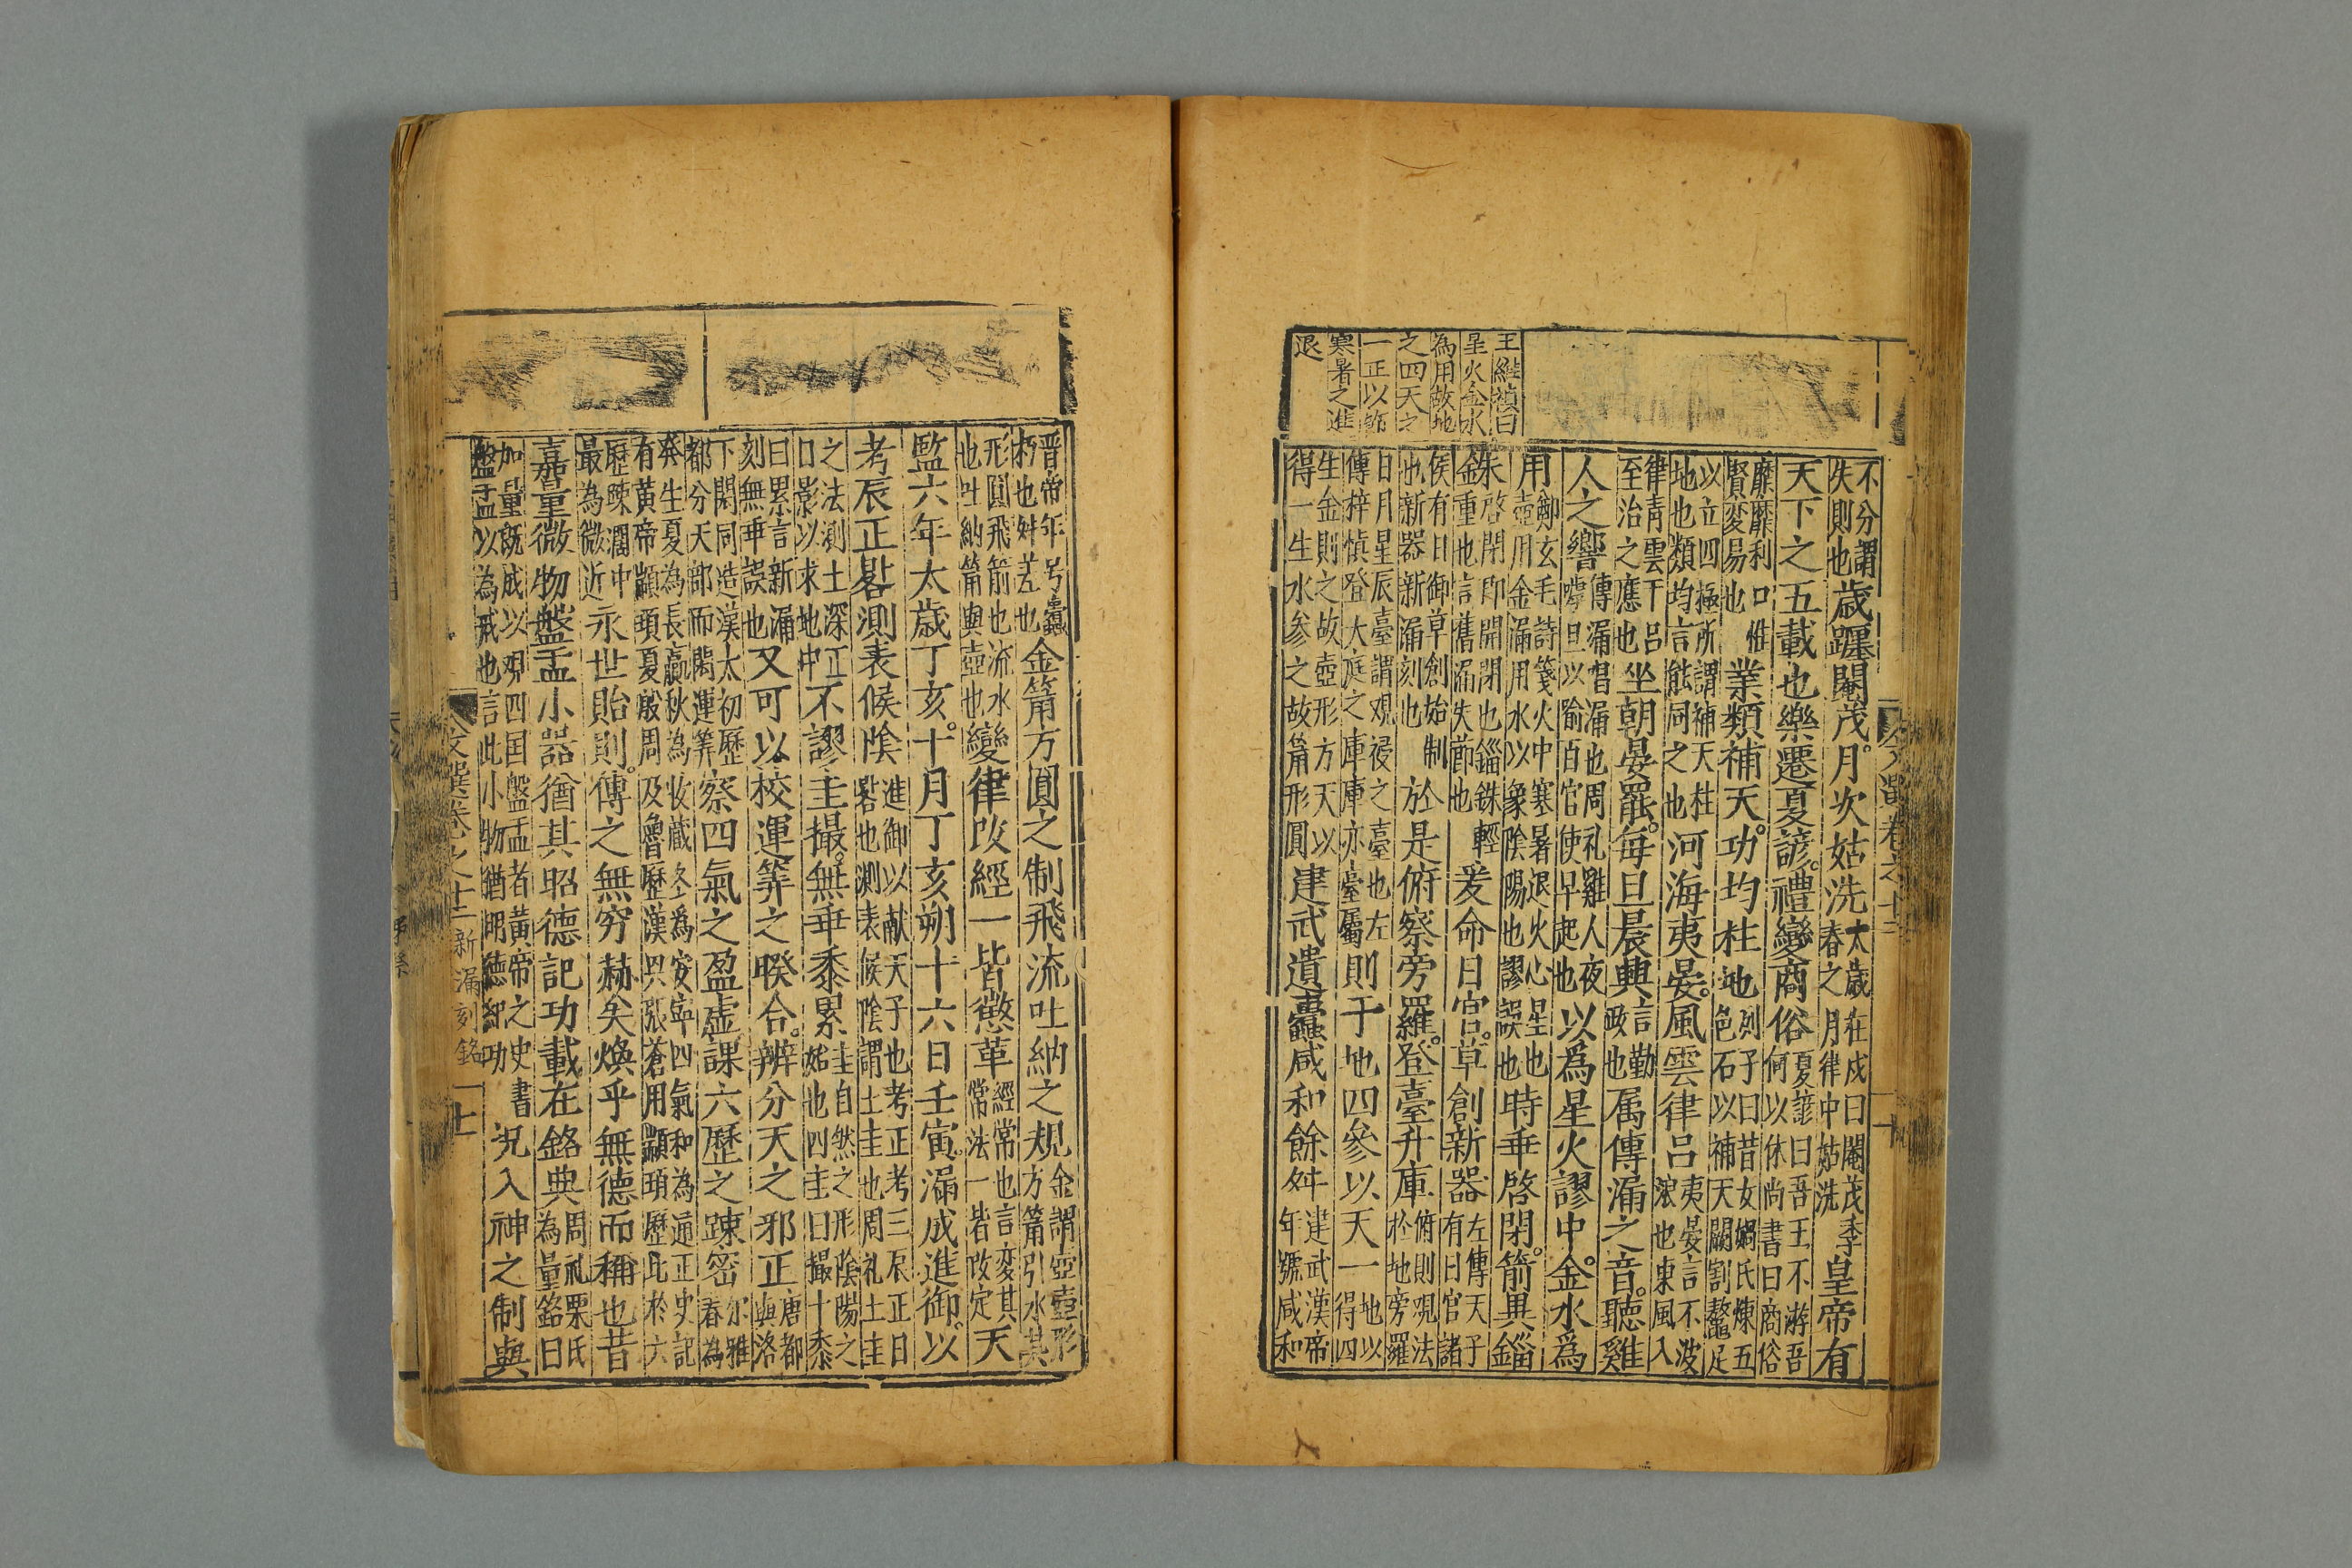 王維禎曰
星火金水
為用故地
之四天之
一正以節
寒暑之進
退
不分謂失則也歲躔閹茂月次姑洗太歲在戍曰閹茂季春之月律中姑洗皇帝有
天下之五載也樂遷夏諺禮變商俗夏諺曰吾王不游吾何以休尚書曰商俗
靡靡利口惟賢変易也業類補天功均柱地列子曰昔女媧氏煉五色石以補天闕割鼇足
以立四極所謂補天柱地也類均言能同之也河海夷晏風雲律呂夷晏言不波浪也東風入
律青雲干呂至治之應也坐朝晏罷每旦晨興言勤政也属傳漏之音聽雞
人之響傳漏唱漏也周礼雞人夜嘑旦以喻百官使早起也以爲星火謬中金水爲
用鄭玄毛詩箋火中寒暑退火心星也壺用金漏用水以象陰陽也謬誤也時乖啓閉箭異錙
朱啓閉即開閉也錙銖輕金重也言舊漏失節也爰命日官草創新器左傳天子有日官諸
侯有日御草創始制也新器新漏刻也於是俯察旁羅登臺升庫俯則观法於地旁羅
日月星辰臺謂观祲之臺也左傳梓慎登大庭之庫庫亦臺屬則于地四參以天一地以四得
生金則之故壺形方天以得一生水参之故箭形圓建武遺蠹咸和餘舛建武漢帝年號咸和
晋帝年号蠹朽也舛差也金筩方圓之制飛流吐納之規金謂壺壺形方筩引水其
形圓飛箭也流水也吐納筩與壺也變律改經一皆懲革經常也言变其常法一皆改定天
監六年太歲丁亥十月丁亥朔十六日壬寅漏成進御以
考辰正晷測表候陰進御以献天子也考正考三辰正日晷也測表候陰謂土圭也周礼土圭
之法測土深正日影以求地中不謬圭撮無乖黍累圭自然之形陰陽之始也四圭曰撮十黍
曰累言新漏刻無乖誤也又可以校運筭之暌合辨分天之邪正唐都與洛
下閎同造漢太初歷都分天部而閎運筭察四氣之盈虛課六歷之踈密尔雅春為
発生夏為長嬴秋為收藏冬為安寧四氣和為通正史記有黄帝顓頊夏殷周及魯歷漢興張蒼用顓頊歷比於六
歷踈濶中最為微近永世貽則傳之無窮赫矣煥乎無德而稱也昔
嘉量微物盤盂小器猶其昭德記功載在銘典周礼栗氏為量銘曰
加量既成以观四国盤盂者黄帝之史書盤盂以為戒也言此小物猶明德紀功況入神之制與
文選卷之十三 新漏刻銘